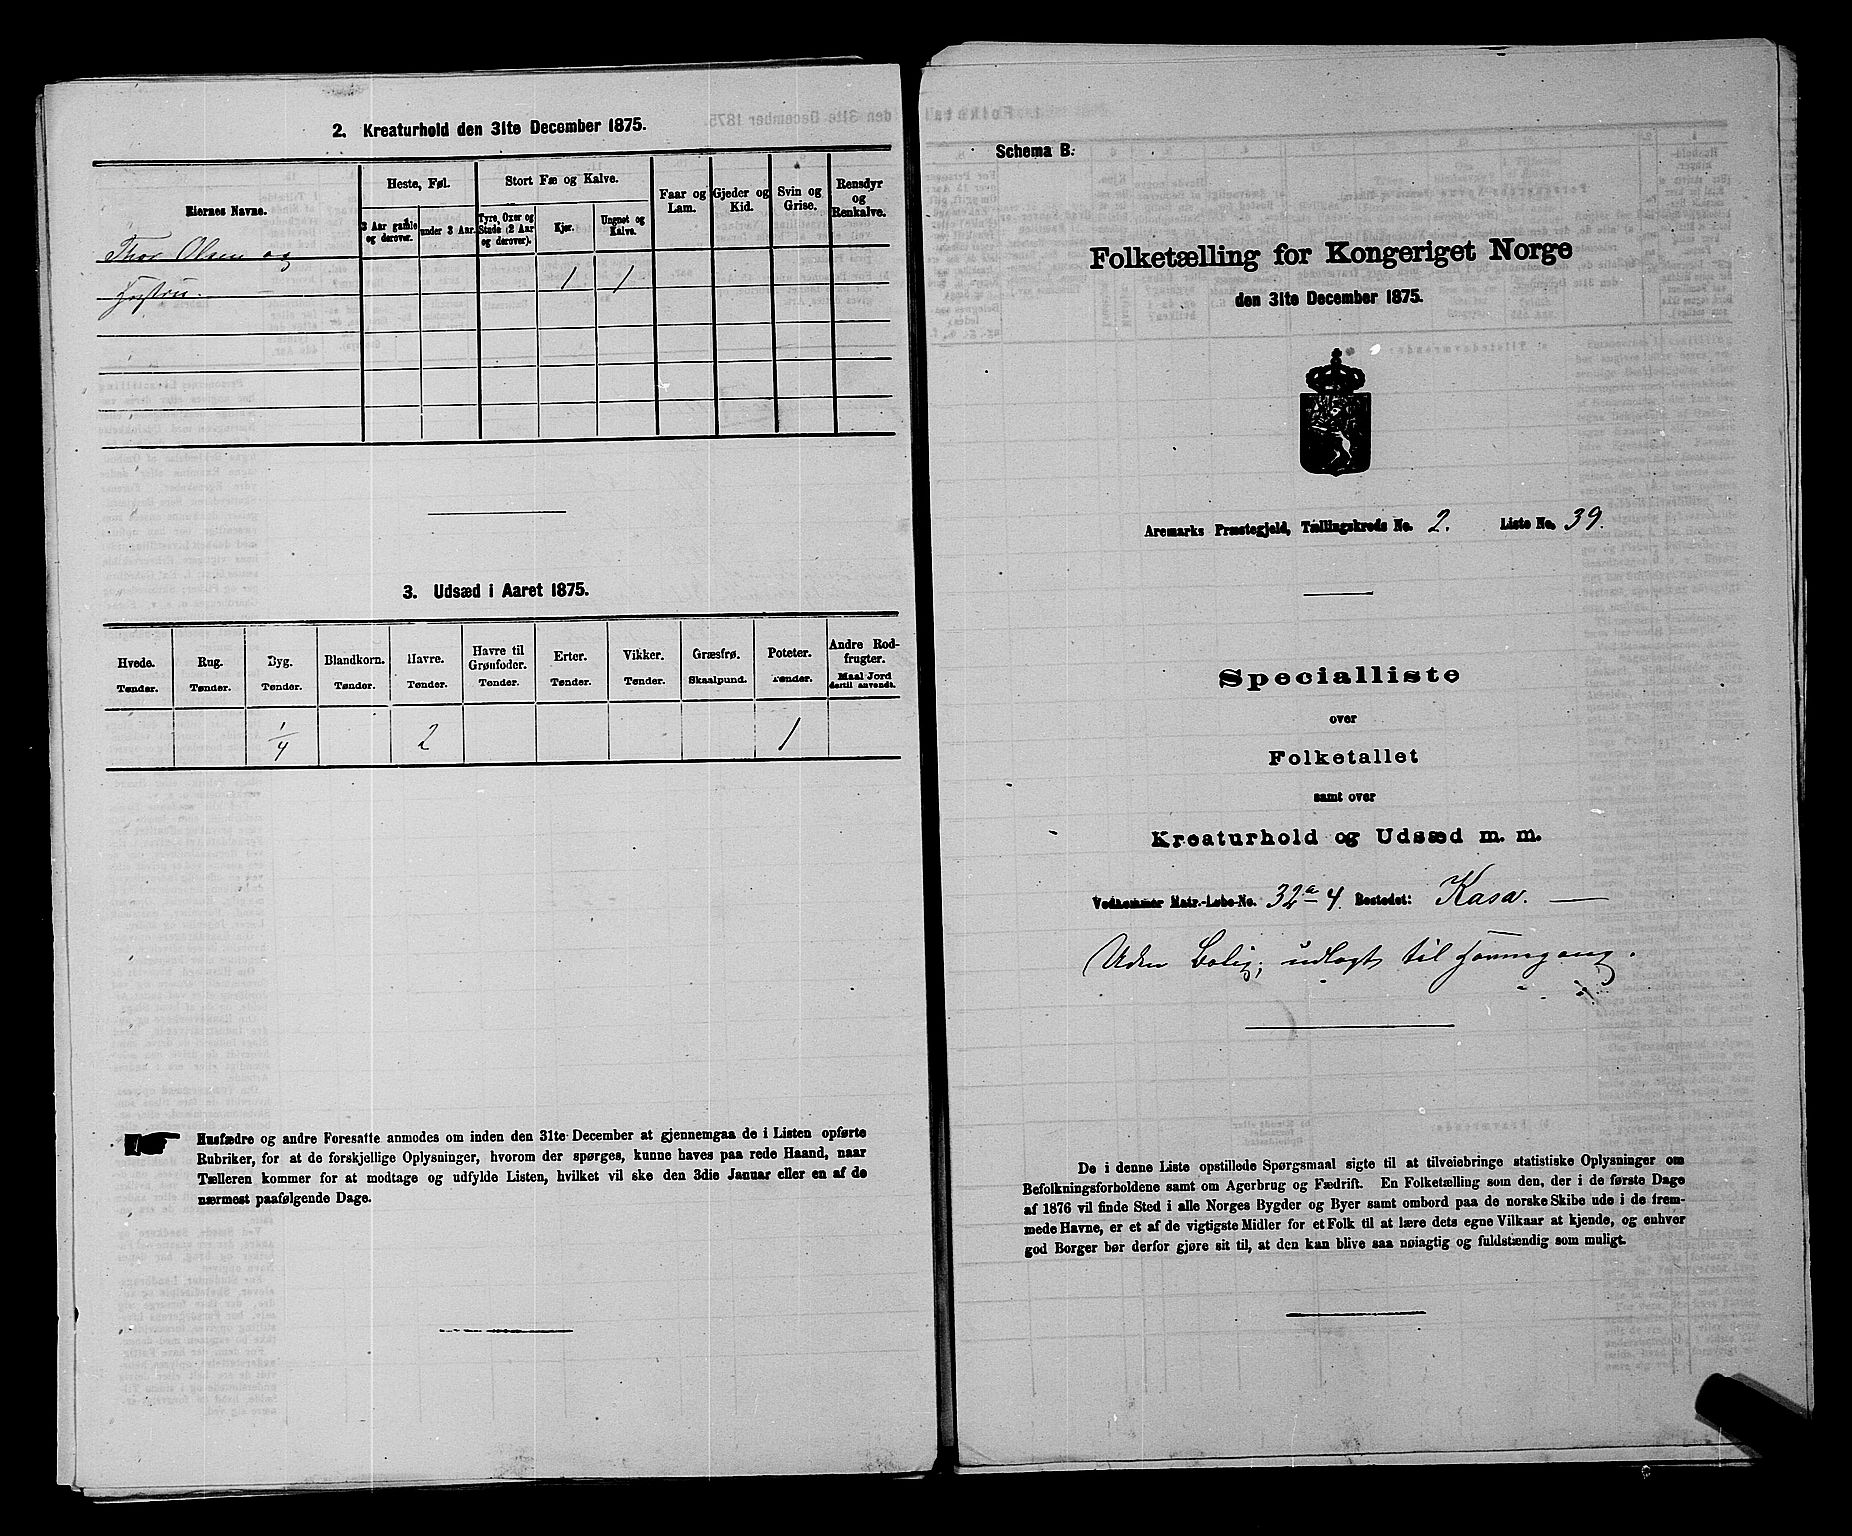 2. Kreaturhold den 31te December 1875.
Eiernes Navne.
Heste, Føl.
Stort Fæ og Kalve.
Faar og Lam.
Gjeder og Kid.
Svin og Grise.
Rensdyr og Renkalve.
3 Aar gamle og derover.
under 3 Aar.
Tyre, Oxer og Stude (2 Aar og derover).
Kjør.
Ungnøt og Kalve.
Thor Olsen og
Hustru. 1 1
3. Udsæd i Aaret 1875.
Hvede. Rug. Byg. Blandkorn. Havre. Havre til Grønfoder. Erter. Vikker. Græsfrø. Poteter. Andre Rodfrugter.
Tønder. Tønder. Tønder. Tønder. Tønder. Tønder. Tønder. Tønder. Skaalpund. Tønder. Maal Jord dertil anvendt.
1/4 2 1
Husfædre og andre Foresatte anmodes om inden den 31te December at gjennemgaa de i Listen opførte
Rubriker, for at de forskjellige Oplysninger, hvorom der spørges, kunne haves paa rede Haand, naar
Tælleren kommer for at modtage og udfylde Listen, hvilket vil ske den 3die Januar eller en af de
nærmest paafølgende Dage.
Schema B.
Folketælling for Kongeriget Norge
den 31te December 1875.
Aremarks Præstegjeld, Tællingskreds No. 2. Liste No. 39.
Specialliste
over
Folketallet
samt over
Kreaturhold og Udsæd m. m.
Vedkommer Matr.-Løbe-No. 32a 4. Bostedet: Kasa.
Uden Bolig; udlagt til Havnegang.
De i denne Liste opstillede Spørgsmaal sigte til at tilveiebringe statistiske Oplysninger om
Befolkningsforholdene samt om Agerbrug og Fædrift. En Folketælling som den, der i de første Dage
af 1876 vil finde Sted i alle Norges Bygder og Byer samt ombord paa de norske Skibe ude i de frem-
mede Havne, er et af de vigtigste Midler for et Folk til at lære dets egne Vilkaar at kjende, og enhver
god Borger bør derfor gjøre sit til, at den kan blive saa nøiagtig og fuldstændig som muligt.